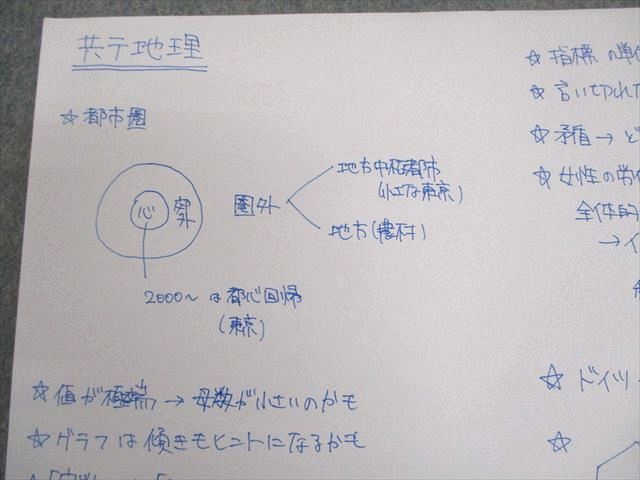 共テ地理
☆都市圏
心
郊外
圏外
地方中枢都市
(小さな東京)
地方(農村)
2000〜は都心回帰
(東京)
☆値が極端→母数が小さいのかも
☆グラフは傾きもヒントになるかも
☆指標の単位
☆言い切れた
☆矛盾→ど
☆女性の労働
全体的
→イ
☆ドイツ
☆